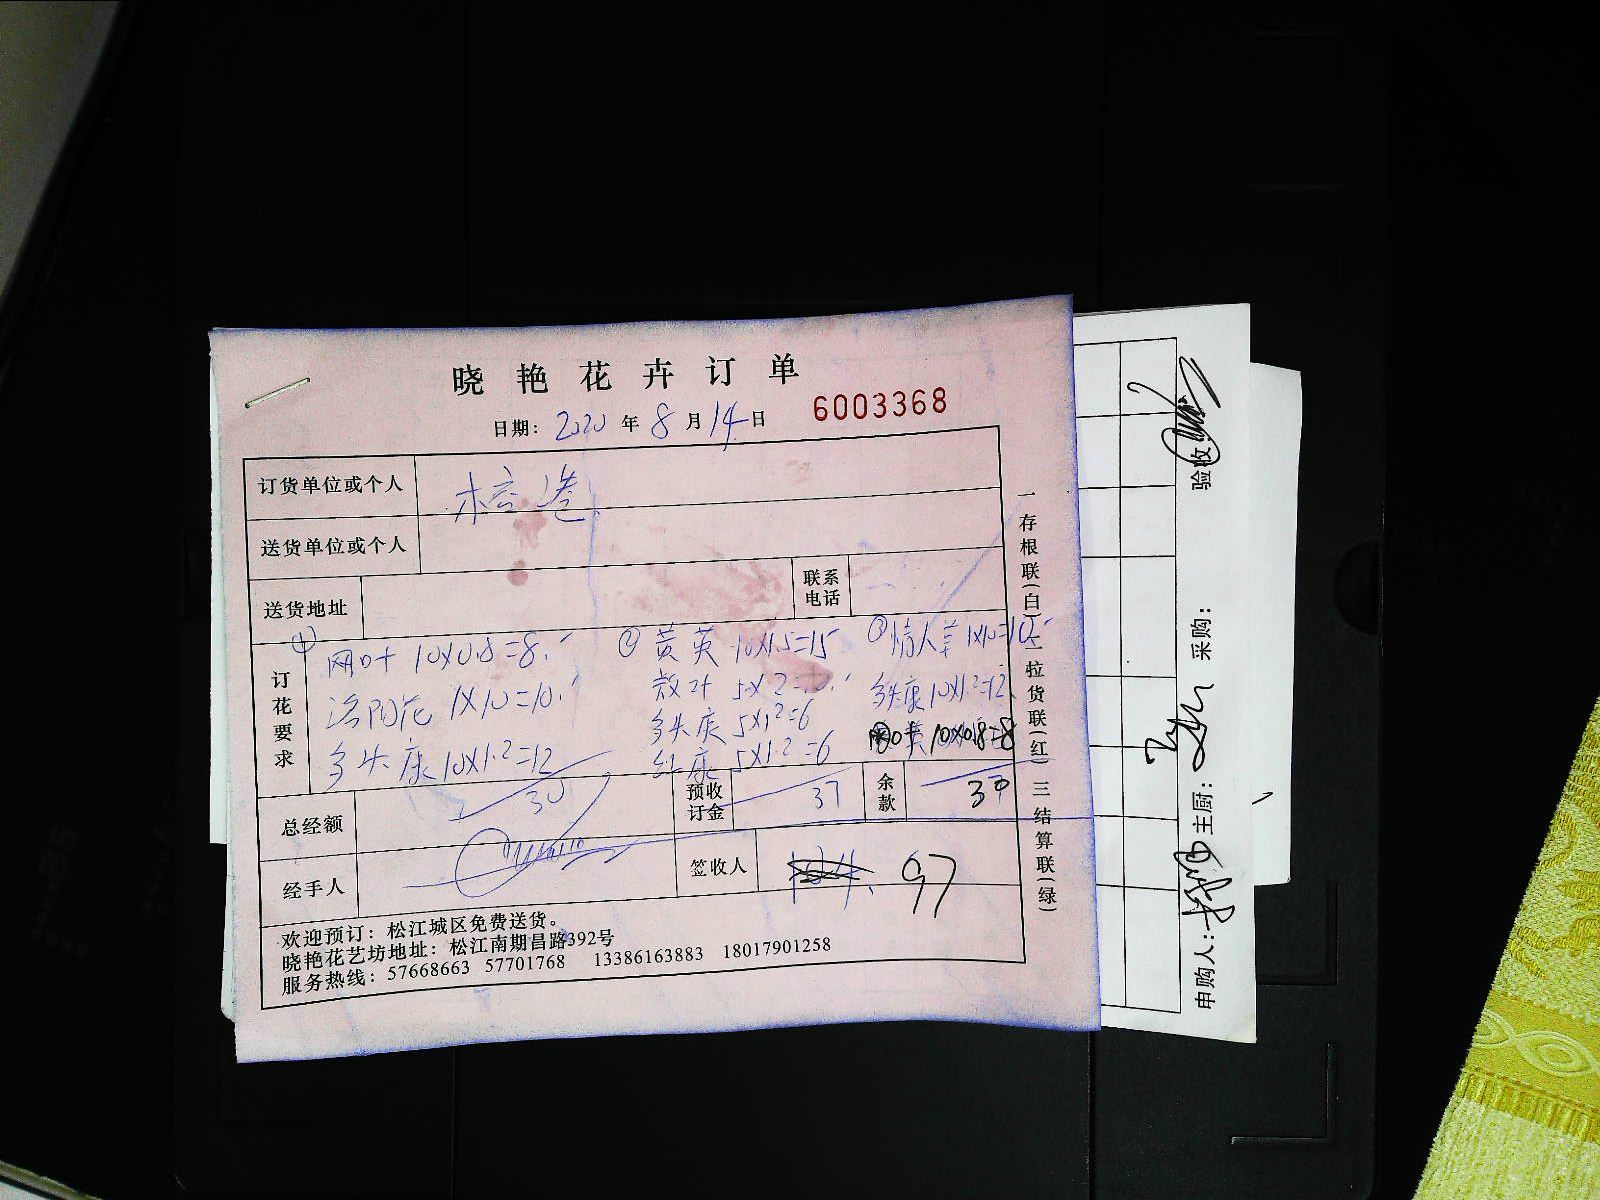 晓艳花卉订单
日期: 2020 年 8 月 14 日 6003368
订货单位或个人
送货单位或个人
送货地址
联系
电话
订花要求
① 网叶 10X0.8=8.
洛阳花 1X10=10.
多头康 10X1.2=12
② 黄英 10X1.5=15
散叶 5X2=10.
多头康 5X1.2=6
红康 5X1.2=6
③ 情人草 1X10=10.
多头康 10X1.2=12
网叶 10X0.8=8
总经额 30
预收
订金 37
余
款 30
经手人
签收人 97
欢迎预订: 松江城区免费送货。
晓艳花艺坊地址: 松江南期昌路392号
服务热线: 57668663 57701768 13386163883 18017901258
一存根联(白)二拉货联(红)三结算联(绿)
申购人: 主厨: 采购: 验收